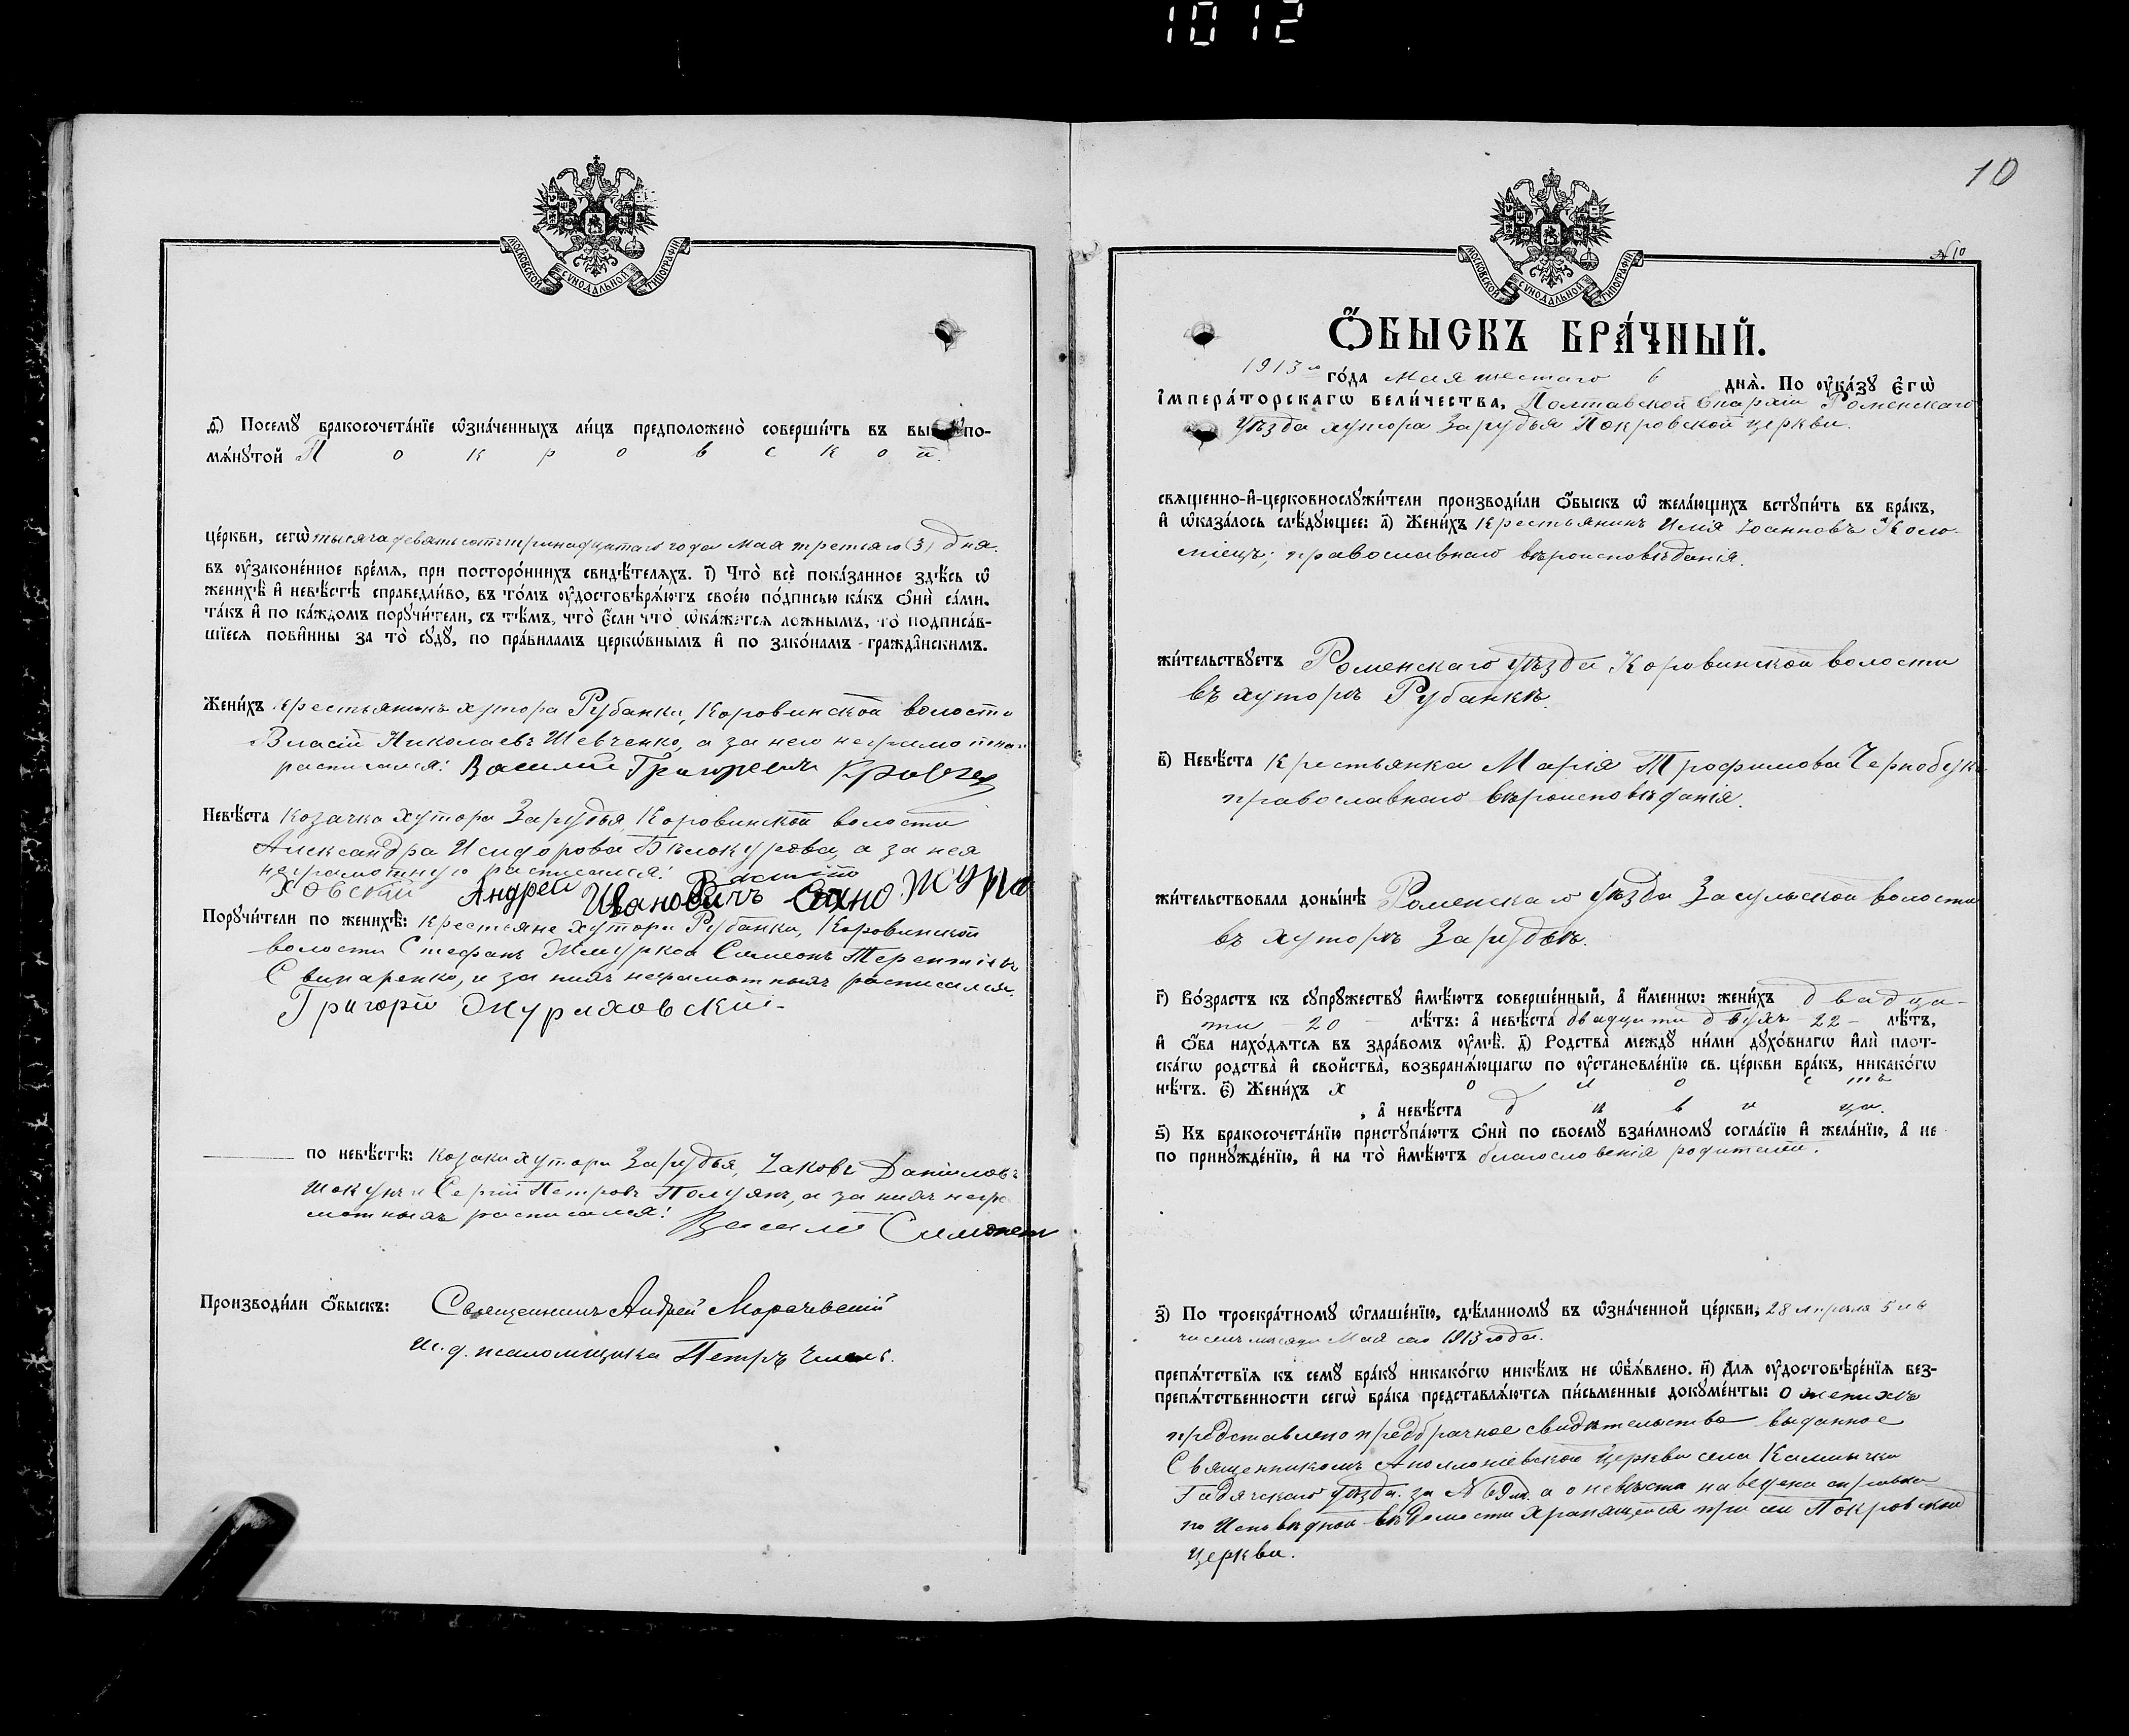 1012
МОСКОВСКОЙ СУНОДАЛЬНОЙ ТИПОГРАФІИ
ѳ҃) Посемꙋ̀ бракосочета́нїе ѡ҆зна́ченныхъ ли́цъ предположено̀ соверши́ть въ вы по-
мѧ́нꙋтой Покровской
це́ркви, сегѡ̀ тысяча девятьсотъ тринадцатаго года Мая третьяго (3) дня.
въ оу҆законе́нное вре́мѧ, при посторо́ннихъ свидѣ́телѧхъ. і҃) Что̀ всѐ пока́занное здѣ́сь ѡ҆
женихѣ̀ и҆ невѣ́стѣ справедли́во, въ то́мъ оу҆достовѣрѧ́ютъ свое́ю по́дписью ка́къ ѻ҆нѝ са́ми.
та́къ и҆ по ка́ждомъ порꙋчи́тели, съ тѣ́мъ, что̀ є҆́сли что̀ ѡ҆ка́жетсѧ ло́жнымъ, то̀ подписа́в-
шїесѧ пови́нны за то̀ сꙋдꙋ̀, по пра́виламъ церкѡ́внымъ и҆ по зако́намъ гражда́нскимъ.
Жени́хъ крестьянинъ хутора Рубанки, Коровинской волости
Власій Николаевъ Шевченко, а за него неграмотнаго
расписался: Василий Григоревич Кравец
Невѣ́ста Козачка хутора Зарудья, Коровинской волости
Александра Исидорова Бѣлокурова, а за нея
неграмотную расписался:
Андрей Ивановичъ Сахно Жура
ховский
Порꙋчи́тели по женихѣ̀: крестьяне хутора Рубанки, Коровинской
волости Стефанъ Жмурко и Симеонъ Терентіевъ
Свинаренко, а за нихъ неграмотныхъ расписался:
Григорій Журяховский
по невѣ́стѣ: козаки хутора Зарудья, Іаковъ Даніиловъ
Шокунъ и Сергій Петровъ Полуянъ, а за нихъ негра
мотныхъ расписался: Василій
Производи́ли ѻ҆́быскъ: Священникъ Андрей Морачевскій
И. д. псаломщика Петръ
10
МОСКОВСКОЙ СУНОДАЛЬНОЙ ТИПОГРАФІИ
№10
Ѻ҆́БЫСКЪ БРА́ЧНЫЙ.
1913 го́да Мая шестаго 6 днѧ̀. По оу҆ка́зꙋ Є҆гѡ̀
І҆мпера́торскагѡ вели́чества, Полтавской Епархіи Роменскаго
Уѣзда хутора Зарудья Покровской церкви.
свѧщенно-и҆-церковнослꙋжи́тели производи́ли ѻ҆́быскъ ѡ҆ жела́ющихъ встꙋпи́ть въ бра́къ,
и҆ ѡ҆каза́лось слѣ́дꙋющее: а҃) Жени́хъ крестьянинъ Илія Іоанновъ Коло-
міецъ; православнаго вѣроисповѣданія.
жи́тельствꙋетъ Роменскаго Уѣзда Коровинской волости
въ хуторѣ Рубанкѣ.
в҃) Невѣ́ста крестьянка Марія Трофимова Чернобук
православнаго вѣроисповѣданія.
жи́тельствовала доны́нѣ Роменскаго Уѣзда Засульской волости
въ хуторѣ Зарудьѣ.
г҃) Во́зрастъ къ сꙋпрꙋжествꙋ̀ и҆мѣ́ютъ соверше́нный, а҆ и҆́меннѡ: жени́хъ двадца-
ти - 20 - лѣ́тъ: а҆ невѣ́ста двадцати двухъ - 22 - лѣ́тъ,
и҆ ѻ҆́ба нахо́дѧтсѧ въ здра́вомъ оу҆мѣ̀. д҃) Родства̀ междꙋ̀ ни́ми дꙋхо́внагѡ и҆лѝ плот-
ска́гѡ родства̀ и҆ сво́йства, возбранѧ́ющагѡ по оу҆становле́нїю св. це́ркви бра́къ, никако́гѡ
нѣ́тъ. є҃) Жени́хъ холостъ
, а҆ невѣ́ста дѣвица.
ѕ҃) Къ бракосочета́нїю пристꙋпа́ютъ ѻ҆нѝ по своемꙋ̀ взаи́мномꙋ согла́сїю и҆ жела́нїю, а҆ не
по принꙋжде́нїю, и҆ на то̀ и҆мѣ́ютъ благословенія родителей.
з҃) По троекра́тномꙋ ѡ҆глаше́нїю, сдѣ́ланномꙋ въ ѡ҆зна́ченной це́ркви, 28 Апрѣля 5 и 6
числъ мѣсяца Мая сего 1913 года.
препѧ́тствїѧ къ семꙋ̀ бра́кꙋ никако́гѡ никѣ́мъ не ѡ҆б̾ѧ́влено. и҃) Длѧ оу҆достовѣре́нїѧ без-
препѧ́тственности сегѡ̀ бра́ка представлѧ́ютсѧ пи́сьменные докꙋме́нты: о женихѣ
представлено предбрачное свидѣтельство выданное
Священникомъ Аполлоніевской церкви села Камышки
Гадячскаго Уѣзда за № 69м. а о невѣстѣ наведена справка
по Исповѣдной вѣдомости хранящейся при сей Покровской
церкви.